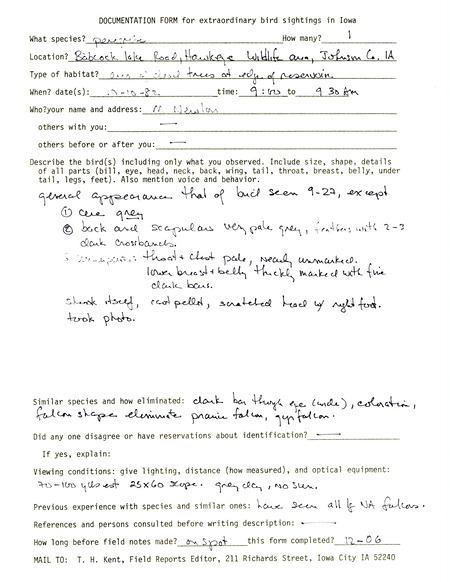 DOCUMENTATION FORM for extraordinary bird sightings in Iowa
What species? How many? 1
Location? Babcock lake Road, Hawkeye Wildlife area, Johnson Co. IA
Type of habitat? area of dead trees at edge of reservoir.
When? date(s): time: 9:00 to 9 30 AM
Who?your name and address:
others with you: —
others before or after you: —
Describe the bird(s) including only what you observed. Include size, shape, details
of all parts (bill, eye, head, neck, back, wing, tail, throat, breast, belly, under
tail, legs, feet). Also mention voice and behavior.
general appearance that of bird seen 9-27, except
① cere grey
② back and scapulars very pale grey, feathers with 2-3
dark crossbands.
throat + chest pale, nearly unmarked.
lower breast + belly thickly marked with fine
dark bars.
shook itself, cast pellet, scratched head w/ right foot.
took photo.
Similar species and how eliminated: dark bar through eye (wide), coloration,
falcon shape eliminate prairie falcon, gyrfalcon.
Did any one disagree or have reservations about identification? —
If yes, explain:
Viewing conditions: give lighting, distance (how measured), and optical equipment:
70-100 yds est 25x60 scope. grey day, no sun.
Previous experience with species and similar ones: have seen all of NA falcons.
References and persons consulted before writing description: —
How long before field notes made? on spot this form completed? 12-06
MAIL TO: T. H. Kent, Field Reports Editor, 211 Richards Street, Iowa City IA 52240